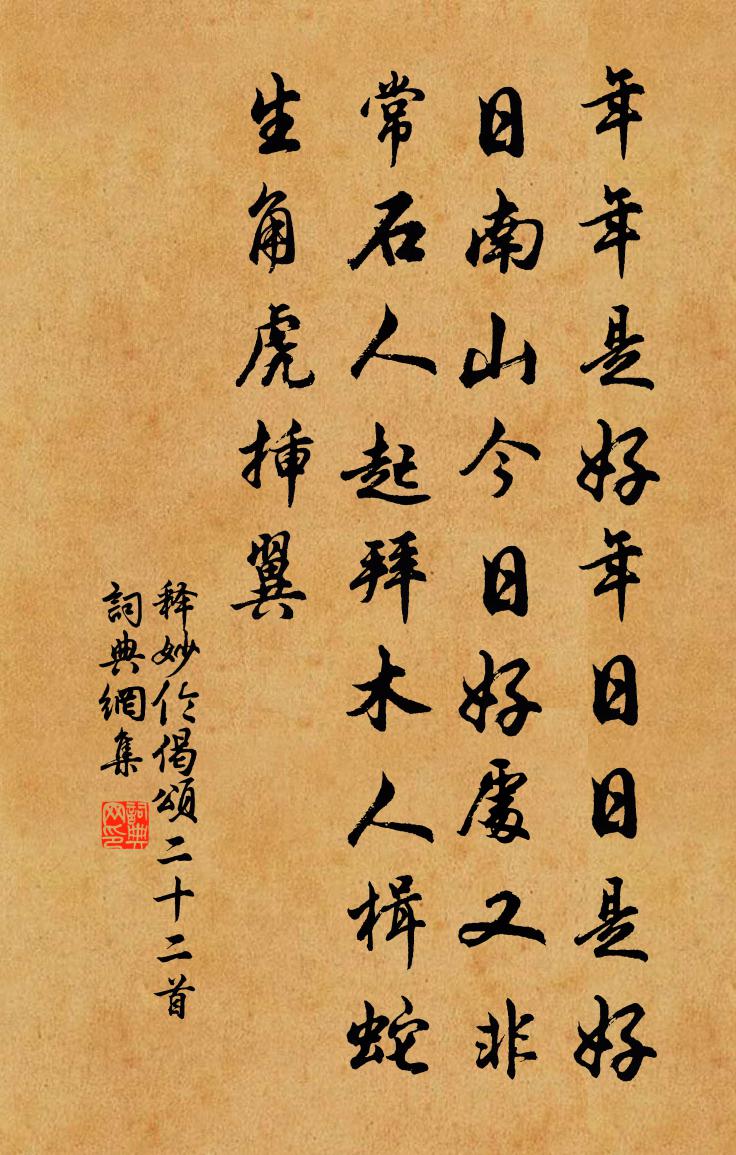 年年是好年日日是好
日南山今日好處又非
常石人起拜木人楫蛇
生角虎挿翼
释妙伦偈頌二十二首
詞典網集
詞典网印